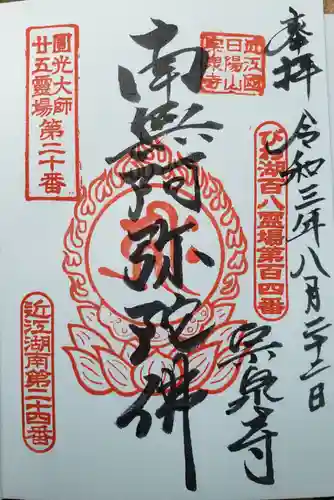 奉拝
令和三年八月二十二日
びわ湖百八霊場第百四番
近江國
日陽山
南無阿弥陀佛
圓光大師
廿五霊場第二十番
近江湖南第二十四番